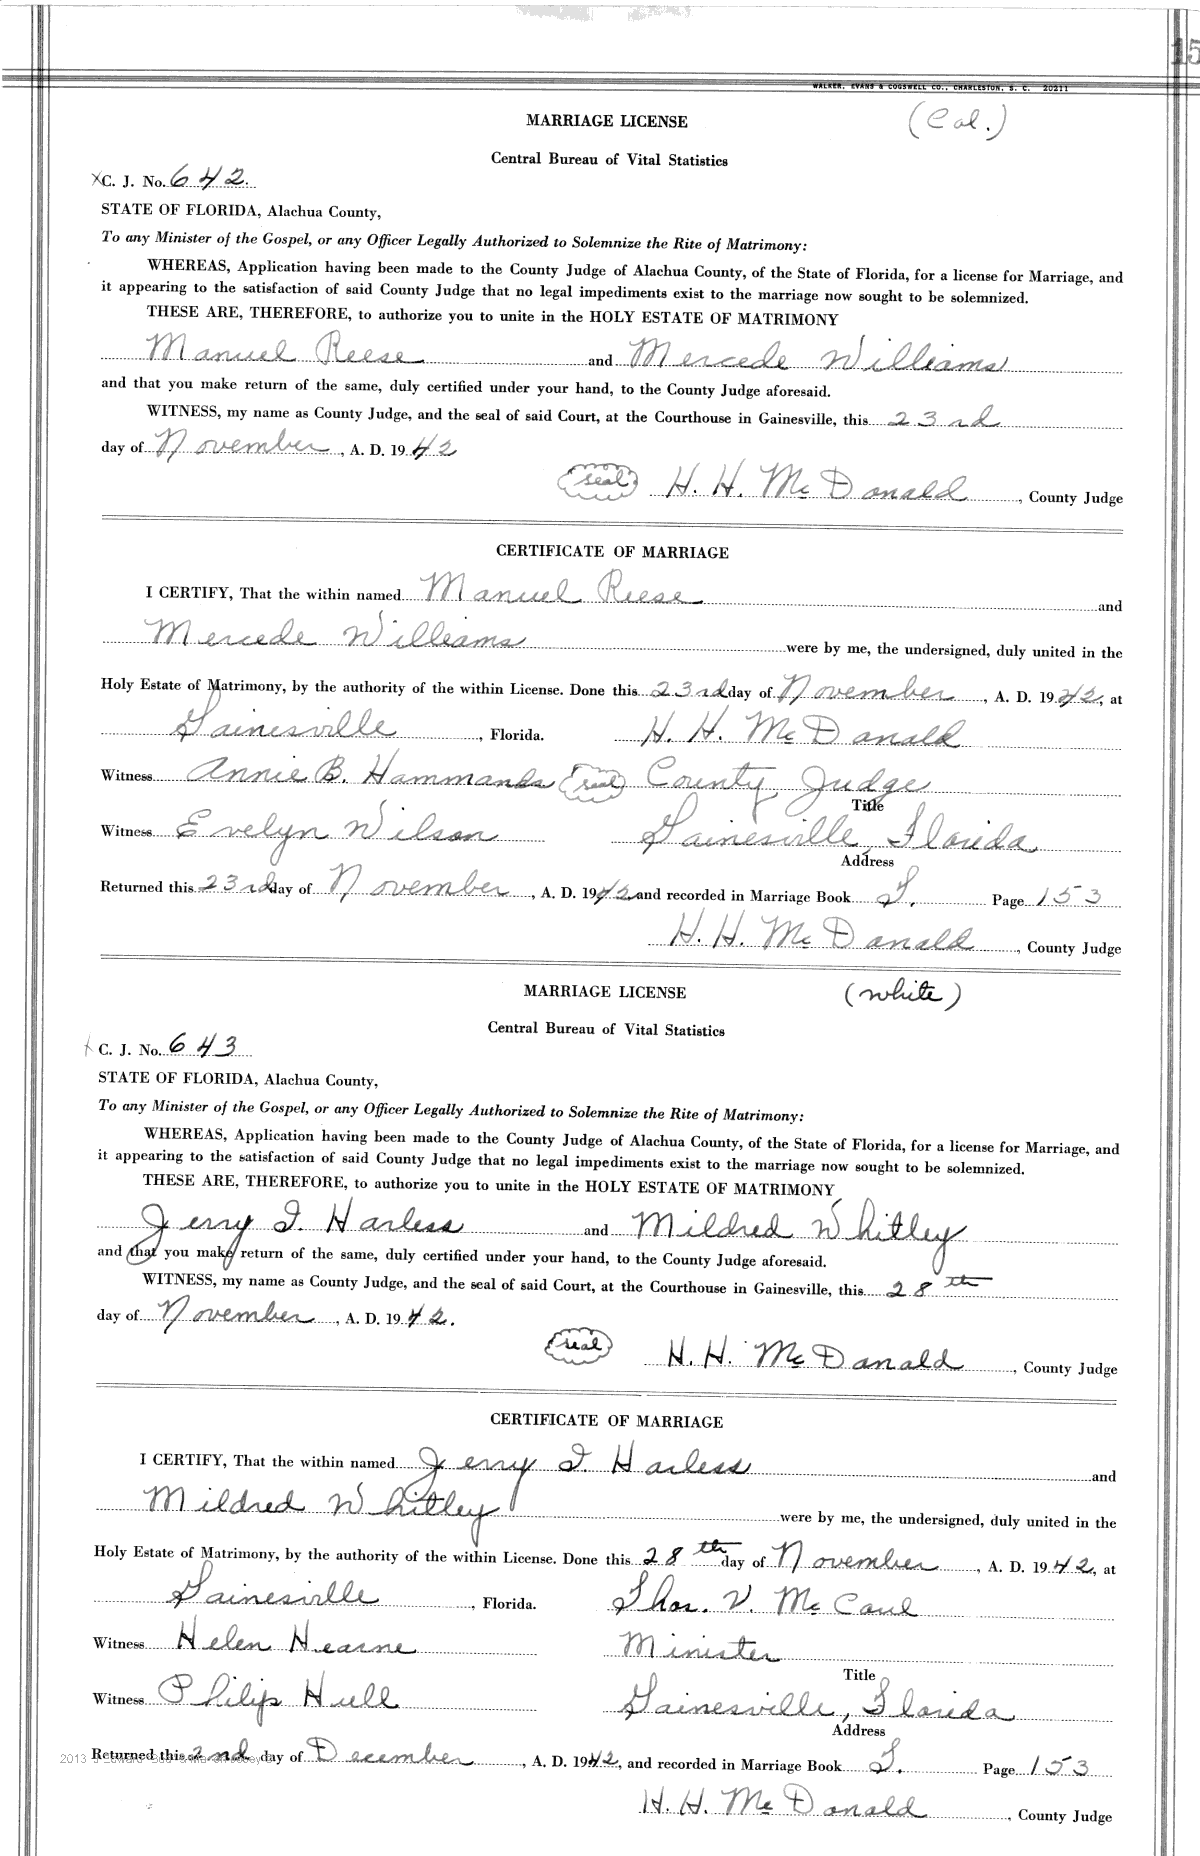 15
WALKER, EVANS & COGSWELL CO., CHARLESTON, S. C. 20211
MARRIAGE LICENSE (Col.)
Central Bureau of Vital Statistics
C. J. No. 642.
STATE OF FLORIDA, Alachua County,
To any Minister of the Gospel, or any Officer Legally Authorized to Solemnize the Rite of Matrimony:
WHEREAS, Application having been made to the County Judge of Alachua County, of the State of Florida, for a license for Marriage, and
it appearing to the satisfaction of said County Judge that no legal impediments exist to the marriage now sought to be solemnized.
THESE ARE, THEREFORE, to authorize you to unite in the HOLY ESTATE OF MATRIMONY
Manuel Reese and Mercede Williams
and that you make return of the same, duly certified under your hand, to the County Judge aforesaid.
WITNESS, my name as County Judge, and the seal of said Court, at the Courthouse in Gainesville, this 23rd
day of November, A. D. 1942
seal H. H. McDonald, County Judge
CERTIFICATE OF MARRIAGE
I CERTIFY, That the within named Manuel Reese and
Mercede Williams were by me, the undersigned, duly united in the
Holy Estate of Matrimony, by the authority of the within License. Done this 23rd day of November, A. D. 1942, at
Gainesville, Florida. H. H. McDonald
Witness Annie B. Hammonds seal County Judge
Title
Witness Evelyn Wilson Gainesville, Florida
Address
Returned this 23rd day of November, A. D. 1942 and recorded in Marriage Book S. Page 153
H. H. McDonald, County Judge
MARRIAGE LICENSE (white)
Central Bureau of Vital Statistics
C. J. No. 643
STATE OF FLORIDA, Alachua County,
To any Minister of the Gospel, or any Officer Legally Authorized to Solemnize the Rite of Matrimony:
WHEREAS, Application having been made to the County Judge of Alachua County, of the State of Florida, for a license for Marriage, and
it appearing to the satisfaction of said County Judge that no legal impediments exist to the marriage now sought to be solemnized.
THESE ARE, THEREFORE, to authorize you to unite in the HOLY ESTATE OF MATRIMONY
Jerry I. Harless and Mildred Whitley
and that you make return of the same, duly certified under your hand, to the County Judge aforesaid.
WITNESS, my name as County Judge, and the seal of said Court, at the Courthouse in Gainesville, this 28th
day of November, A. D. 1942.
seal H. H. McDonald, County Judge
CERTIFICATE OF MARRIAGE
I CERTIFY, That the within named Jerry I. Harless and
Mildred Whitley were by me, the undersigned, duly united in the
Holy Estate of Matrimony, by the authority of the within License. Done this 28th day of November, A. D. 1942, at
Gainesville, Florida. Thos. V. McCaul
Witness Helen Hearne Minister
Title
Witness Philip Hull Gainesville, Florida
Address
Returned this 2nd day of December, A. D. 1942, and recorded in Marriage Book S. Page 153
H. H. McDonald, County Judge